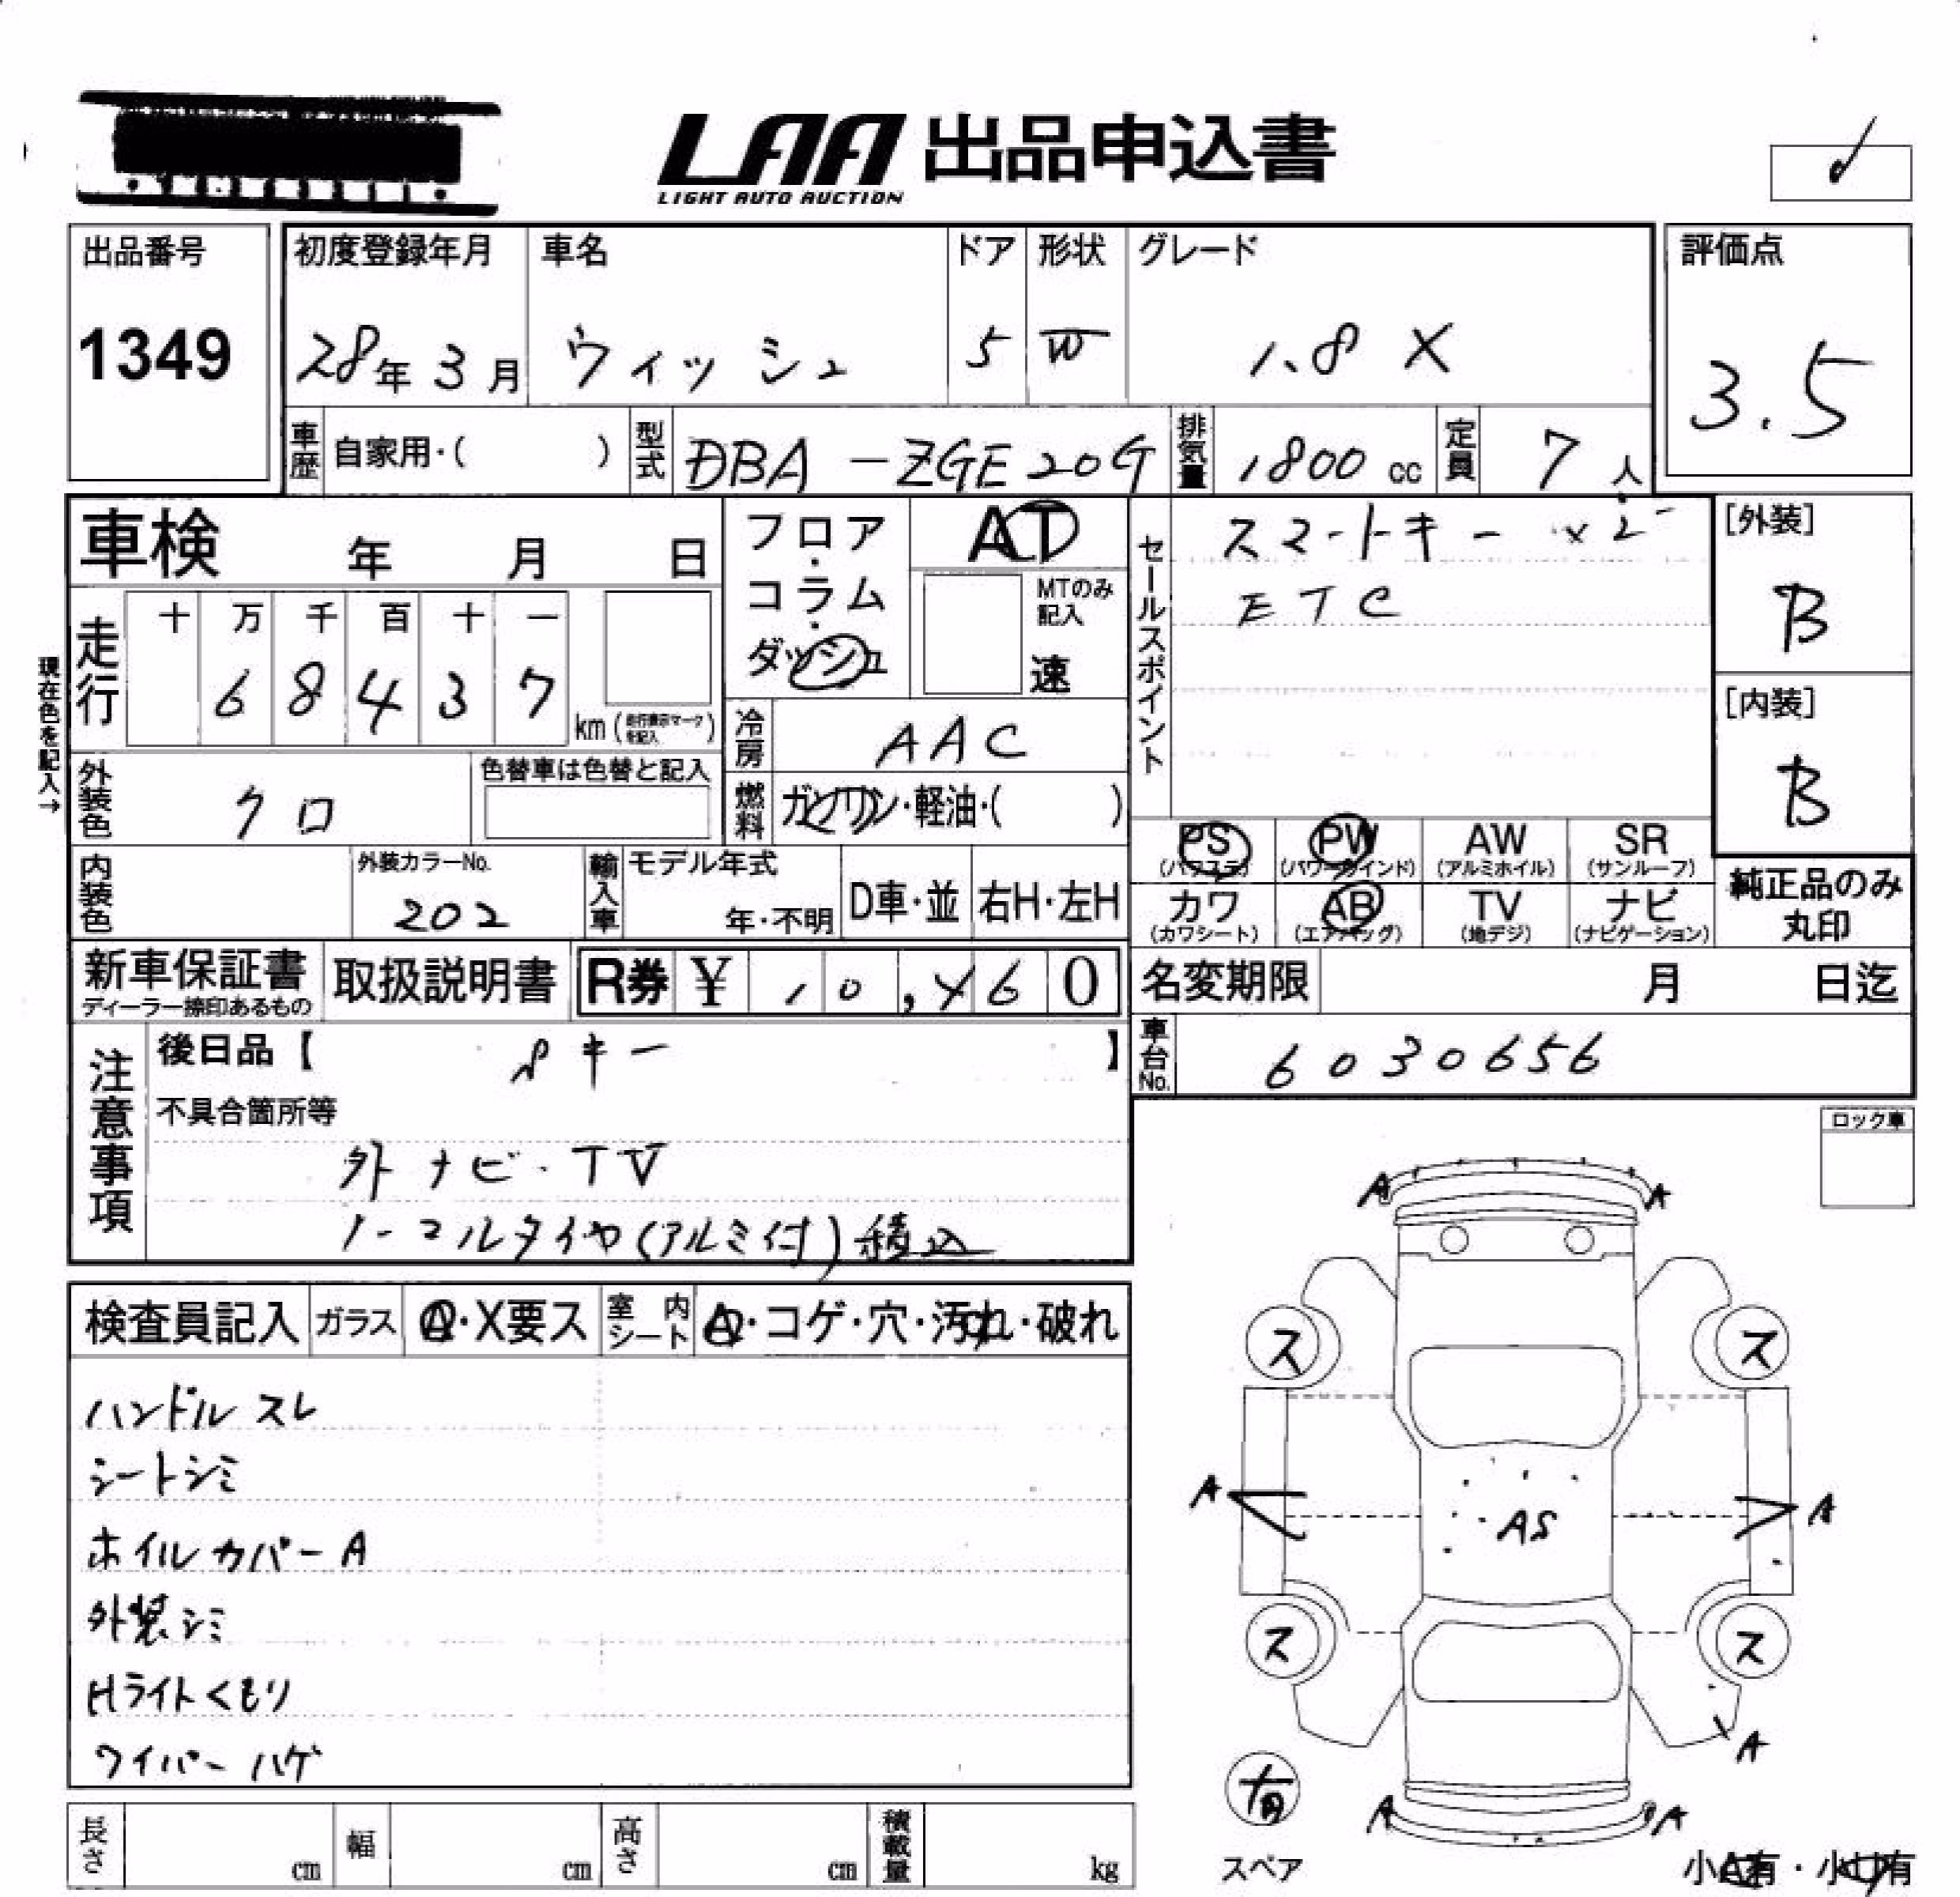 LAA 出品申込書
LIGHT AUTO AUCTION
出品番号
1349
初度登録年月
28年3月
車名
ウィッシュ
ドア
5
形状
W
グレード
1.8 X
評価点
3.5
車歴
自家用・( )
型式
DBA-ZGE20G
排気量
1800 cc
定員
7人
車検 年 月 日
走行
十 万 千 百 十 一
6 8 4 3 7
km (走行表示マークを記入)
現在色を記入→
外装色
クロ
色替車は色替と記入
内装色
外装カラーNo.
202
輸入車
モデル年式
年・不明
D車・並
右H・左H
フロア・コラム・ダッシュ
AT
MTのみ記入
速
冷房
AAC
燃料
ガソリン・軽油・( )
セールスポイント
スマートキー ×2
ETC
[外装]
B
[内装]
B
PS (パワステ)
PW (パワーウインド)
AW (アルミホイル)
SR (サンルーフ)
カワ (カワシート)
AB (エアバッグ)
TV (地デジ)
ナビ (ナビゲーション)
純正品のみ丸印
新車保証書
ディーラー捺印あるもの
取扱説明書
R券 ¥
0
名変期限 月 日迄
車台No.
6030656
注意事項
後日品【 キー 】
不具合箇所等
外 ナビ・TV
ノーマルタイヤ(アルミ付)積込
ロック車
検査員記入
ガラス
A・X要ス
室内シート
A・コゲ・穴・汚れ・破れ
ハンドルスレ
シートシミ
ホイルカバーA
外装シミ
Hライトくもり
ワイパーハゲ
A A
ス ス
A AS A
ス ス
A
A A
有
スペア
小A有・小U有
長さ cm
幅 cm
高さ cm
積載量 kg